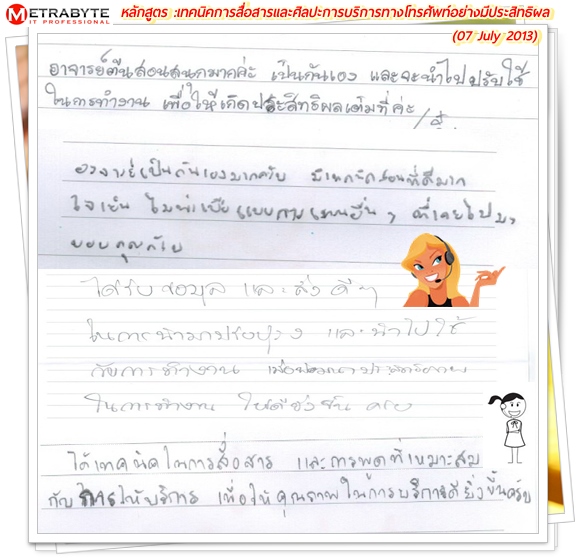 METRABYTE
IT PROFESSIONAL
หลักสูตร :เทคนิคการสื่อสารและศิลปะการบริการทางโทรศัพท์อย่างมีประสิทธิผล
(07 July 2013)
อาจารย์ตีนสอนสนุกมากค่ะ เป็นกันเอง และจะนำไปปรับใช้
ในการทำงาน เพื่อให้เกิดประสิทธิผลเต็มที่ค่ะ
อาจารย์เป็นกันเองมากครับ มีเทคนิคสอนที่ดีมาก
ใจเย็น ไม่น่าเบื่อ ที่เคยไปมา
ขอบคุณครับ
ได้รับข้อมูล และ สิ่ง ดีๆ
ในการนำมาปรับปรุง และนำไปใช้
กับการทำงาน เพื่อพัฒนาประสิทธิภาพ
ในการทำงาน ให้ดียิ่งขึ้น ครับ
ได้เทคนิคในการสื่อสาร และการพูดที่เหมาะสม
กับการให้บริการ เพื่อให้คุณภาพในการบริการดียิ่งขึ้นครับ